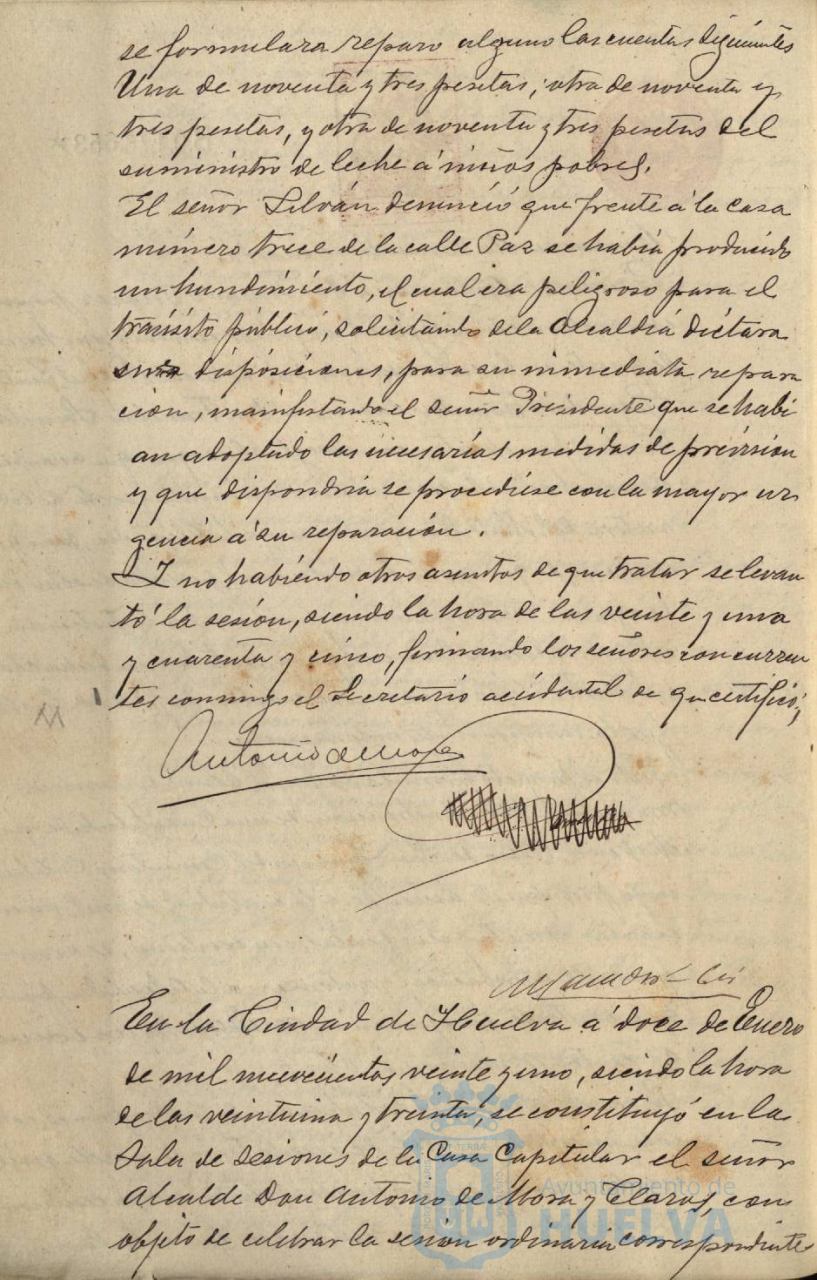 se formulara reparo alguno las cuentas siguientes
Una de noventa y tres pesetas; otra de noventa y
tres pesetas, y otra de noventa y tres pesetas del
suministro de leche á niños pobres.
El señor Silván denunció que frente á la casa
número trece de la calle Paz se había producido
un hundimiento, el cual era peligroso para el
tránsito público, solicitando de la Alcaldía dictara
sus disposiciones, para su inmediata repara
ción, manifestando el señor Presidente que se habí
an adoptado las necesarias medidas de previsión
y que dispondría se procediese con la mayor ur
gencia á su reparación.
Y no habiendo otros asuntos de que tratar se levan
tó la sesión, siendo la hora de las veinte y una
y cuarenta y cinco, firmando los señores concurren
tes conmigo el Secretario accidental de que certifico;
Antonio de Mora
En la Ciudad de Huelva á doce de Enero
de mil novecientos veinte y uno, siendo la hora
de las veintiuna y treinta, se constituyó en la
Sala de sesiones de la Casa Capitular el señor
Alcalde Don Antonio de Mora y Claros, con
objeto de celebrar la sesión ordinaria correspondiente
Ayuntamiento de
HUELVA